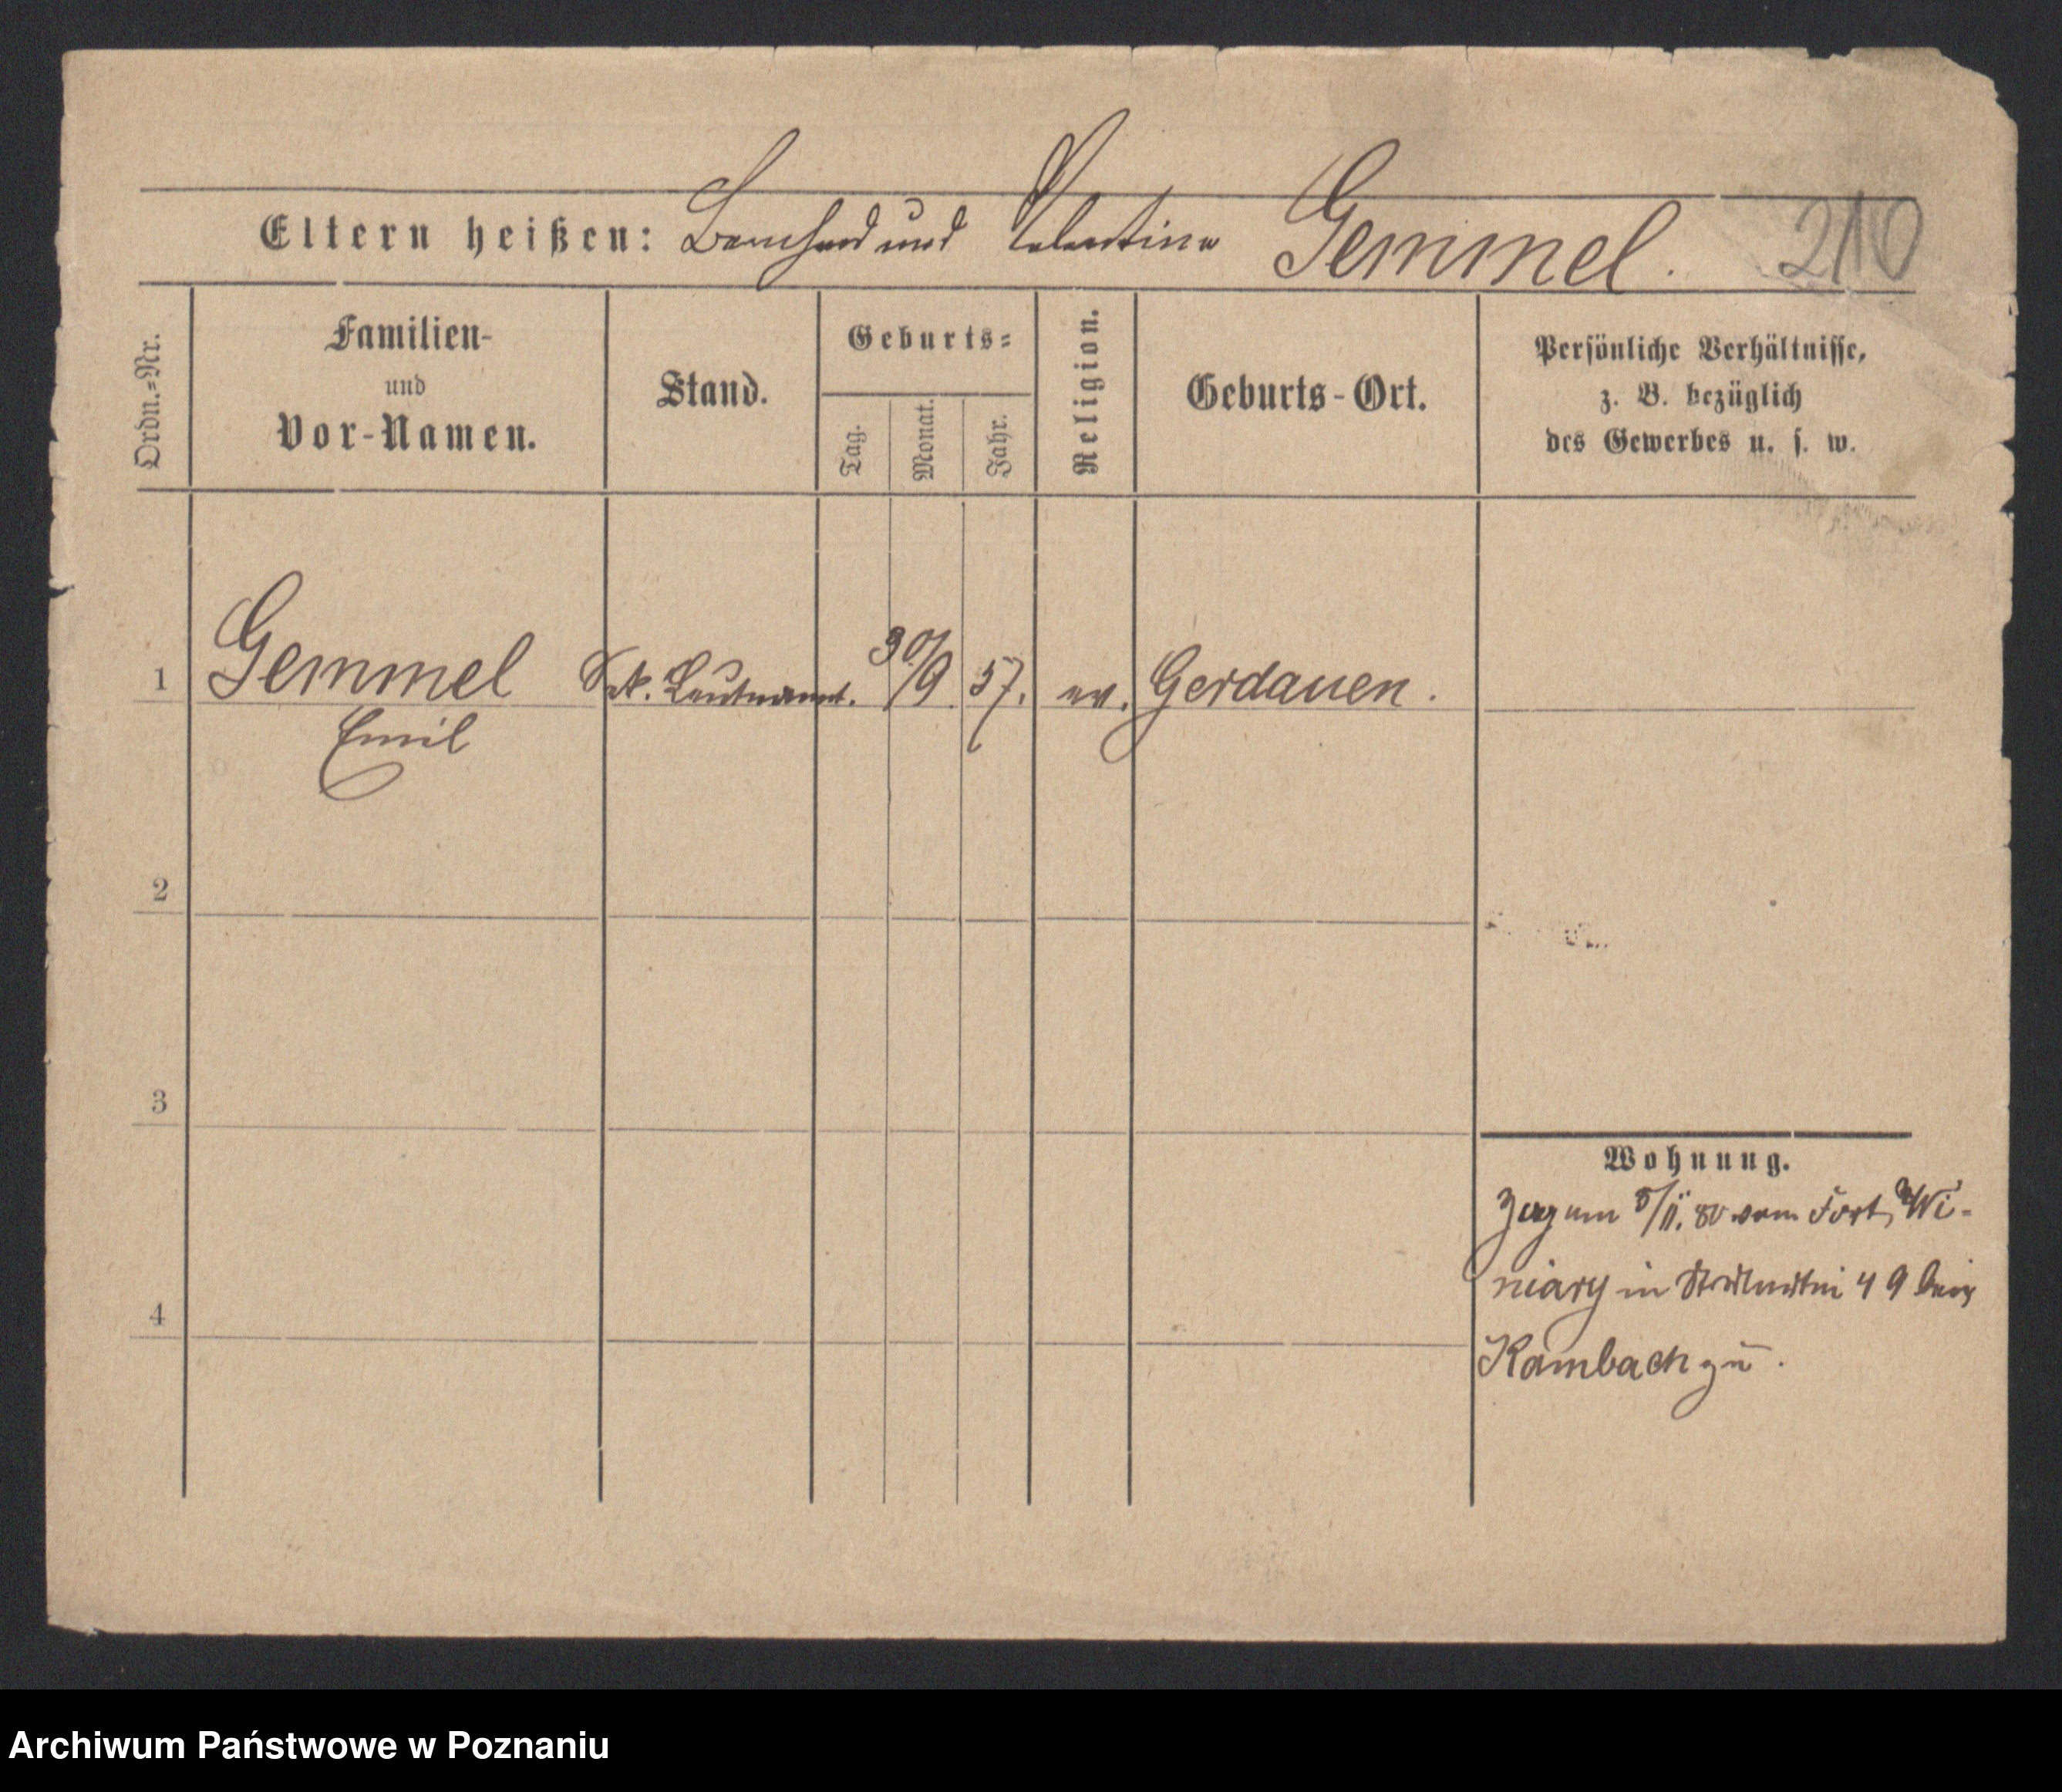 Eltern heißen: Bernhard und Valentine Gemmel. 210
Ordn.=Nr.
Familien- und Vor-Namen.
Stand.
Geburts=
Tag.
Monat.
Jahr.
Religion.
Geburts-Ort.
Persönliche Verhältnisse,
z. B. bezüglich
des Gewerbes u. s. w.
1 Gemmel Sek. Leutnant. 30/9. 57. ev. Gerdauen.
Emil
2
3
4
Wohnung.
Zog am 5/11. 80 vom Fort Wi-
niary in 49 bei
Kambach zu.
Archiwum Państwowe w Poznaniu